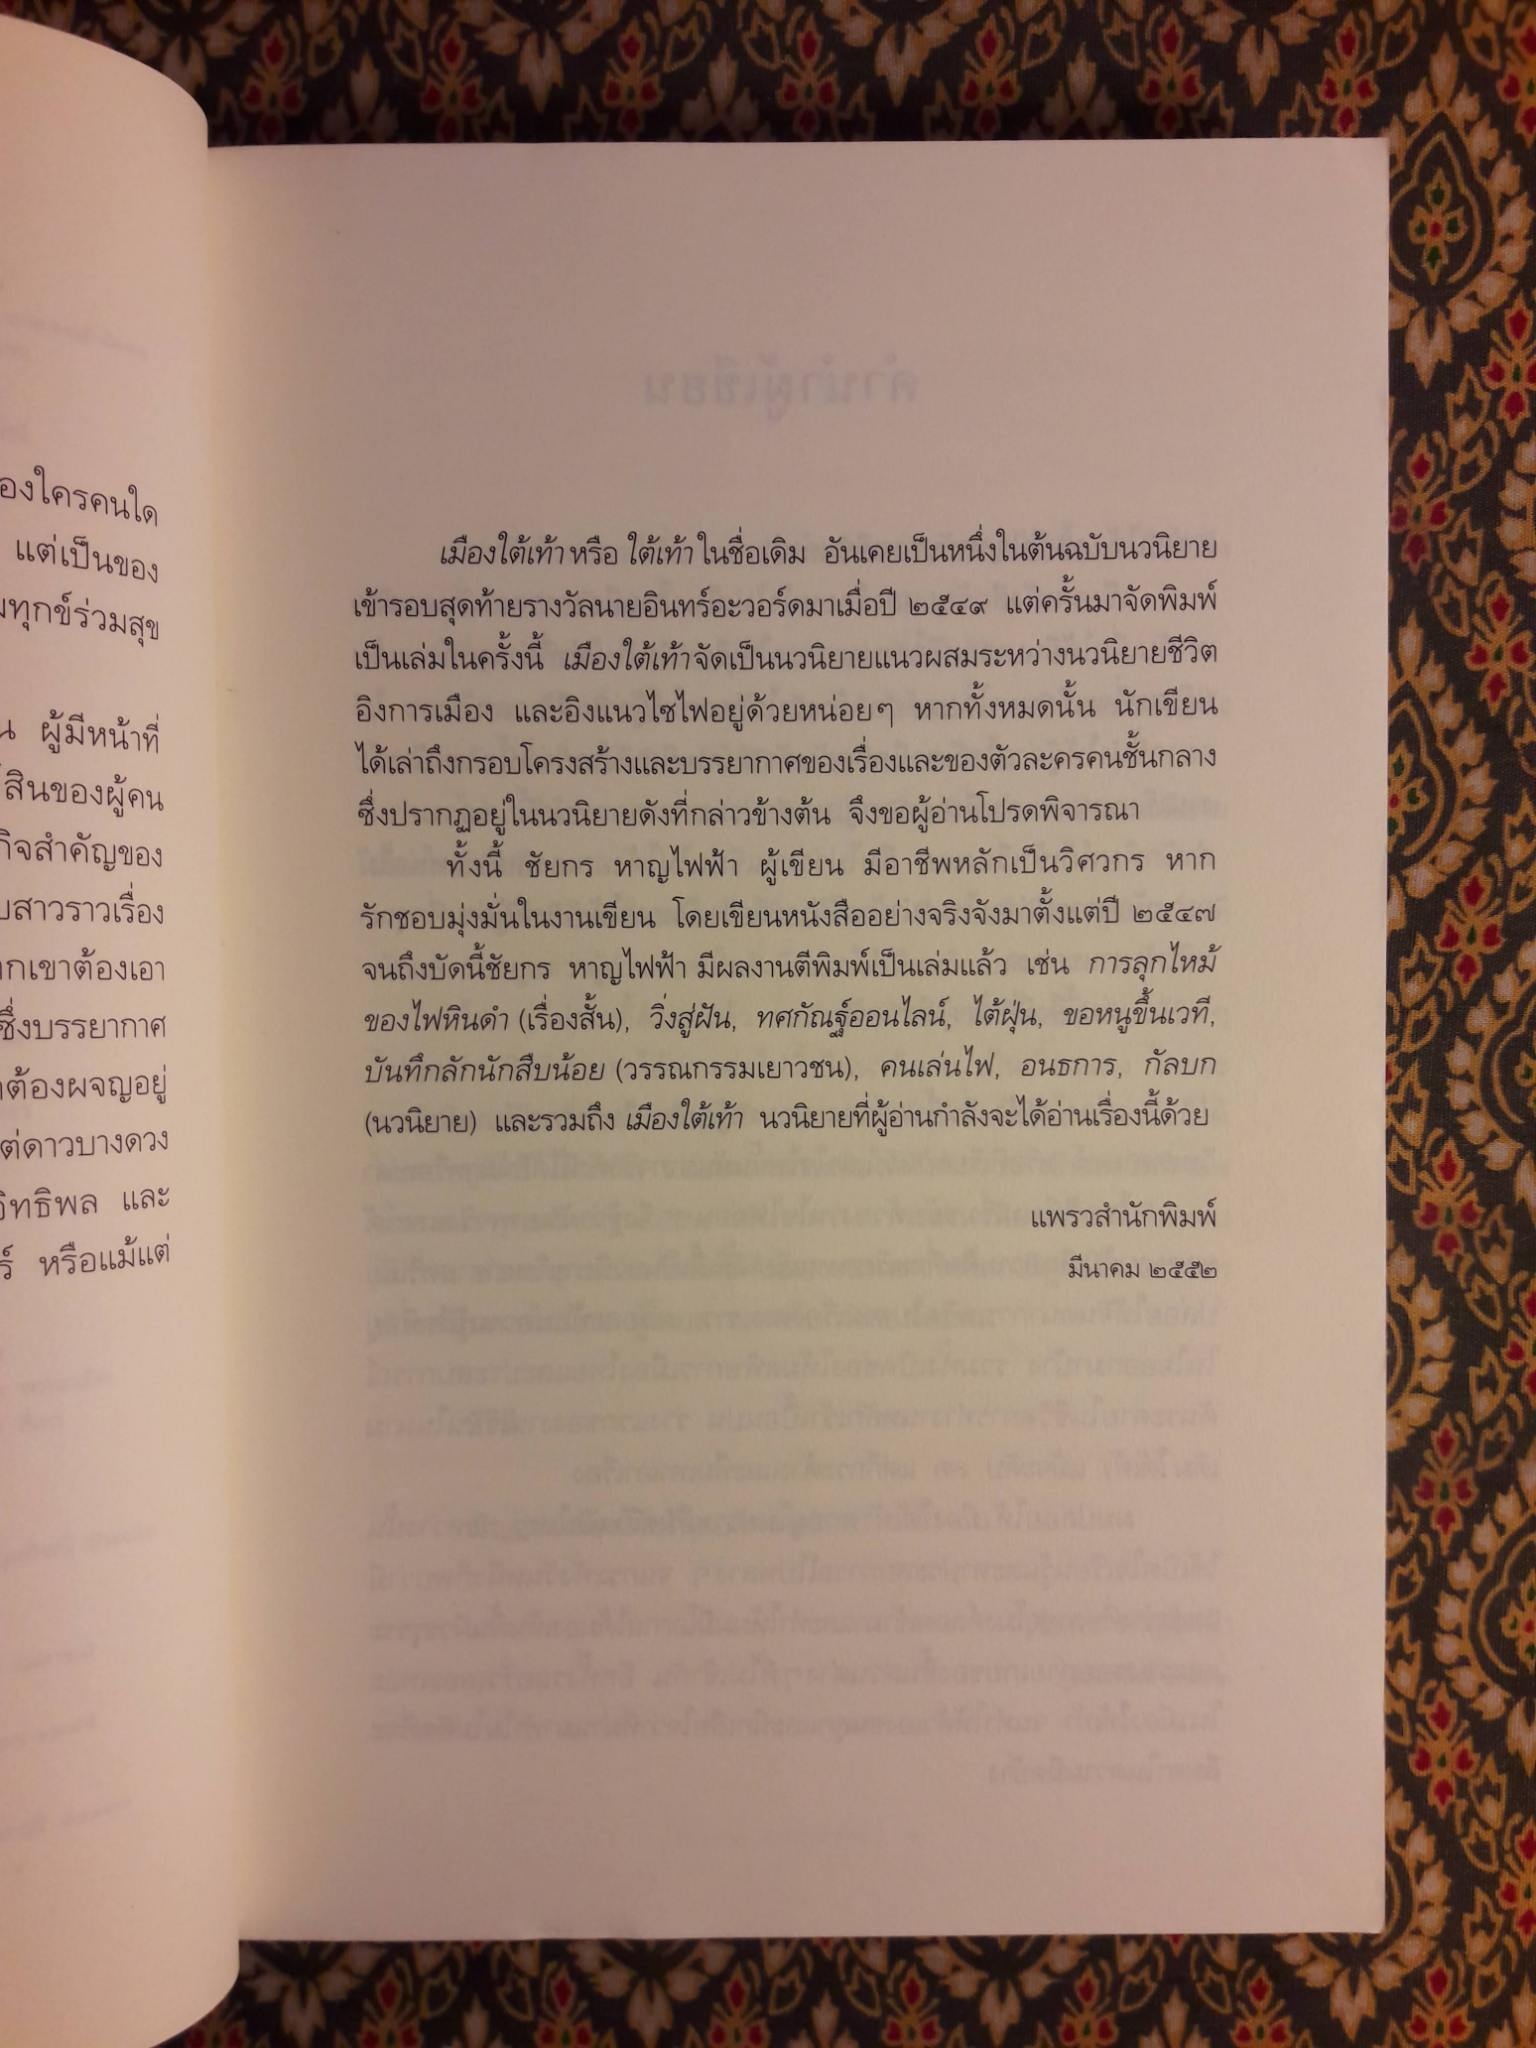 องใครคนใด
แต่เป็นของ
ทุกข์ร่วมสุข
ผู้มีหน้าที่
สินของผู้คน
กิจสำคัญของ
สาวราวเรื่อง
กเขาต้องเอา
ซึ่งบรรยากาศ
ต้องผจญอยู่
ต่ดาวบางดวง
อิทธิพล และ
ร์ หรือแม้แต่
เมืองใต้เท้า หรือ ใต้เท้า ในชื่อเดิม อันเคยเป็นหนึ่งในต้นฉบับนวนิยาย
เข้ารอบสุดท้ายรางวัลนายอินทร์อะวอร์ดมาเมื่อปี ๒๕๔๙ แต่ครั้นมาจัดพิมพ์
เป็นเล่มในครั้งนี้ เมืองใต้เท้าจัดเป็นนวนิยายแนวผสมระหว่างนวนิยายชีวิต
อิงการเมือง และอิงแนวไซไฟอยู่ด้วยหน่อยๆ หากทั้งหมดนั้น นักเขียน
ได้เล่าถึงกรอบโครงสร้างและบรรยากาศของเรื่องและของตัวละครคนชั้นกลาง
ซึ่งปรากฏอยู่ในนวนิยายดังที่กล่าวข้างต้น จึงขอผู้อ่านโปรดพิจารณา
ทั้งนี้ ชัยกร หาญไฟฟ้า ผู้เขียน มีอาชีพหลักเป็นวิศวกร หาก
รักชอบมุ่งมั่นในงานเขียน โดยเขียนหนังสืออย่างจริงจังมาตั้งแต่ปี ๒๕๔๗
จนถึงบัดนี้ชัยกร หาญไฟฟ้า มีผลงานตีพิมพ์เป็นเล่มแล้ว เช่น การลุกไหม้
ของไฟหินดำ (เรื่องสั้น), วิ่งสู่ฝัน, ทศกัณฐ์ออนไลน์, ไต้ฝุ่น, ขอหนูขึ้นเวที,
บันทึกลักนักสืบน้อย (วรรณกรรมเยาวชน), คนเล่นไฟ, อนธการ, กัลบก
(นวนิยาย) และรวมถึง เมืองใต้เท้า นวนิยายที่ผู้อ่านกำลังจะได้อ่านเรื่องนี้ด้วย
แพรวสำนักพิมพ์
มีนาคม ๒๕๕๒